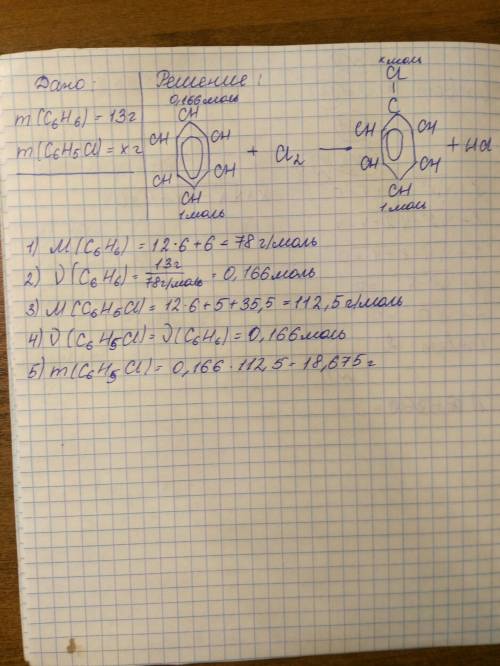 Дано:
Решение:
m(C6H6) = 13г
m(C6H5Cl) = x г
0,166моль
CH
CH CH
CH CH
CH
1моль
+ Cl2 →
x моль
Cl
C
CH CH
CH CH
CH
1моль
+ HCl
1) M(C6H6) = 12·6+6 = 78 г/моль
2) ν(C6H6) = 13г / 78г/моль = 0,166моль
3) M(C6H5Cl) = 12·6+5+35,5 = 112,5 г/моль
4) ν(C6H5Cl) = ν(C6H6) = 0,166моль
5) m(C6H5Cl) = 0,166·112,5 = 18,675г